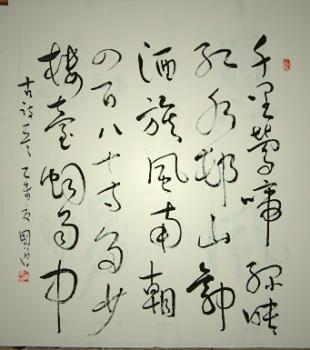 千里鶯啼綠映
紅水邨山郭
酒旗風南朝
四百八十寺多少
樓臺烟雨中
古詩一首